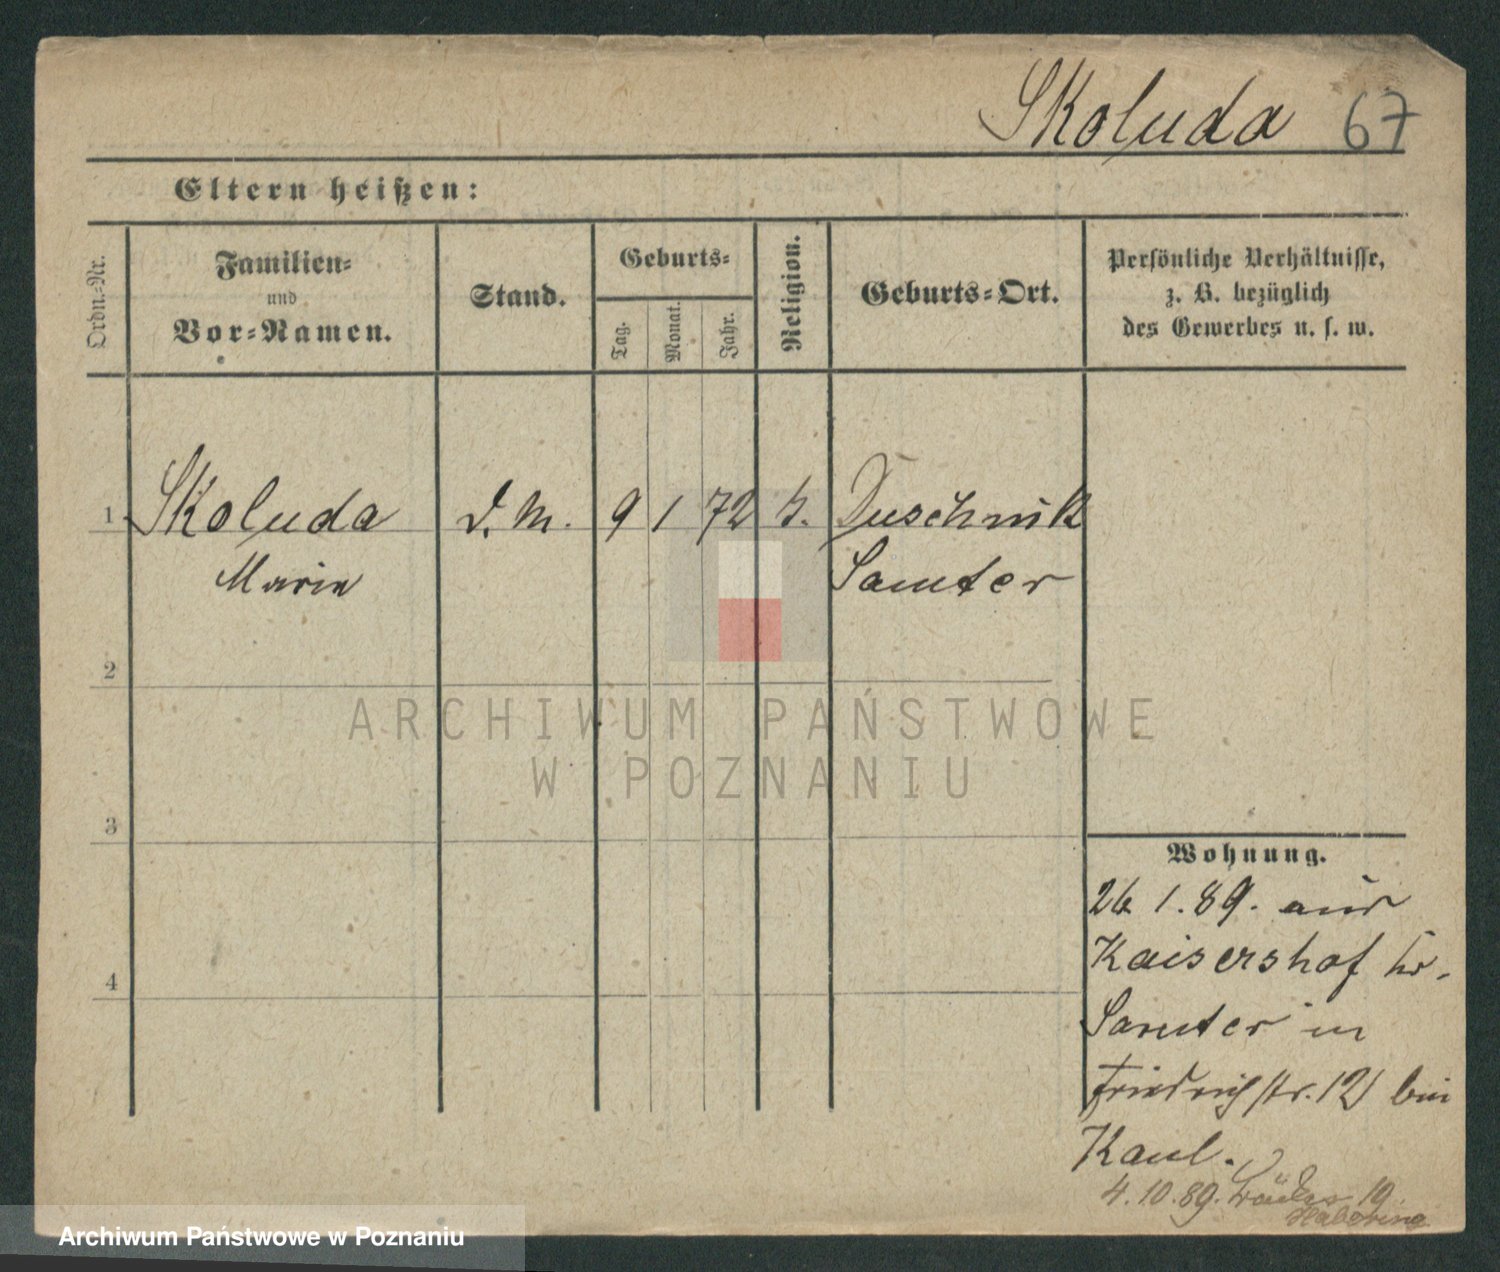 Skoluda 67
Eltern heißen:
Ordn.-Nr.
Familien-
und
Vor-Namen.
Stand.
Geburts-
Tag.
Monat.
Jahr.
Religion.
Geburts-Ort.
Persönliche Verhältnisse,
z. B. bezüglich
des Gewerbes u. s. w.
1 Skoluda D. M. 9 1 72 k. Duschnik
Marie Samter
2
ARCHIWUM PAŃSTWOWE
W POZNANIU
3
Wohnung.
26 1. 89. aus
Kaisershof Kr.
Samter in
Friedrichstr. 12 bei
Kaul.
4
4. 10. 89. 19
Archiwum Państwowe w Poznaniu